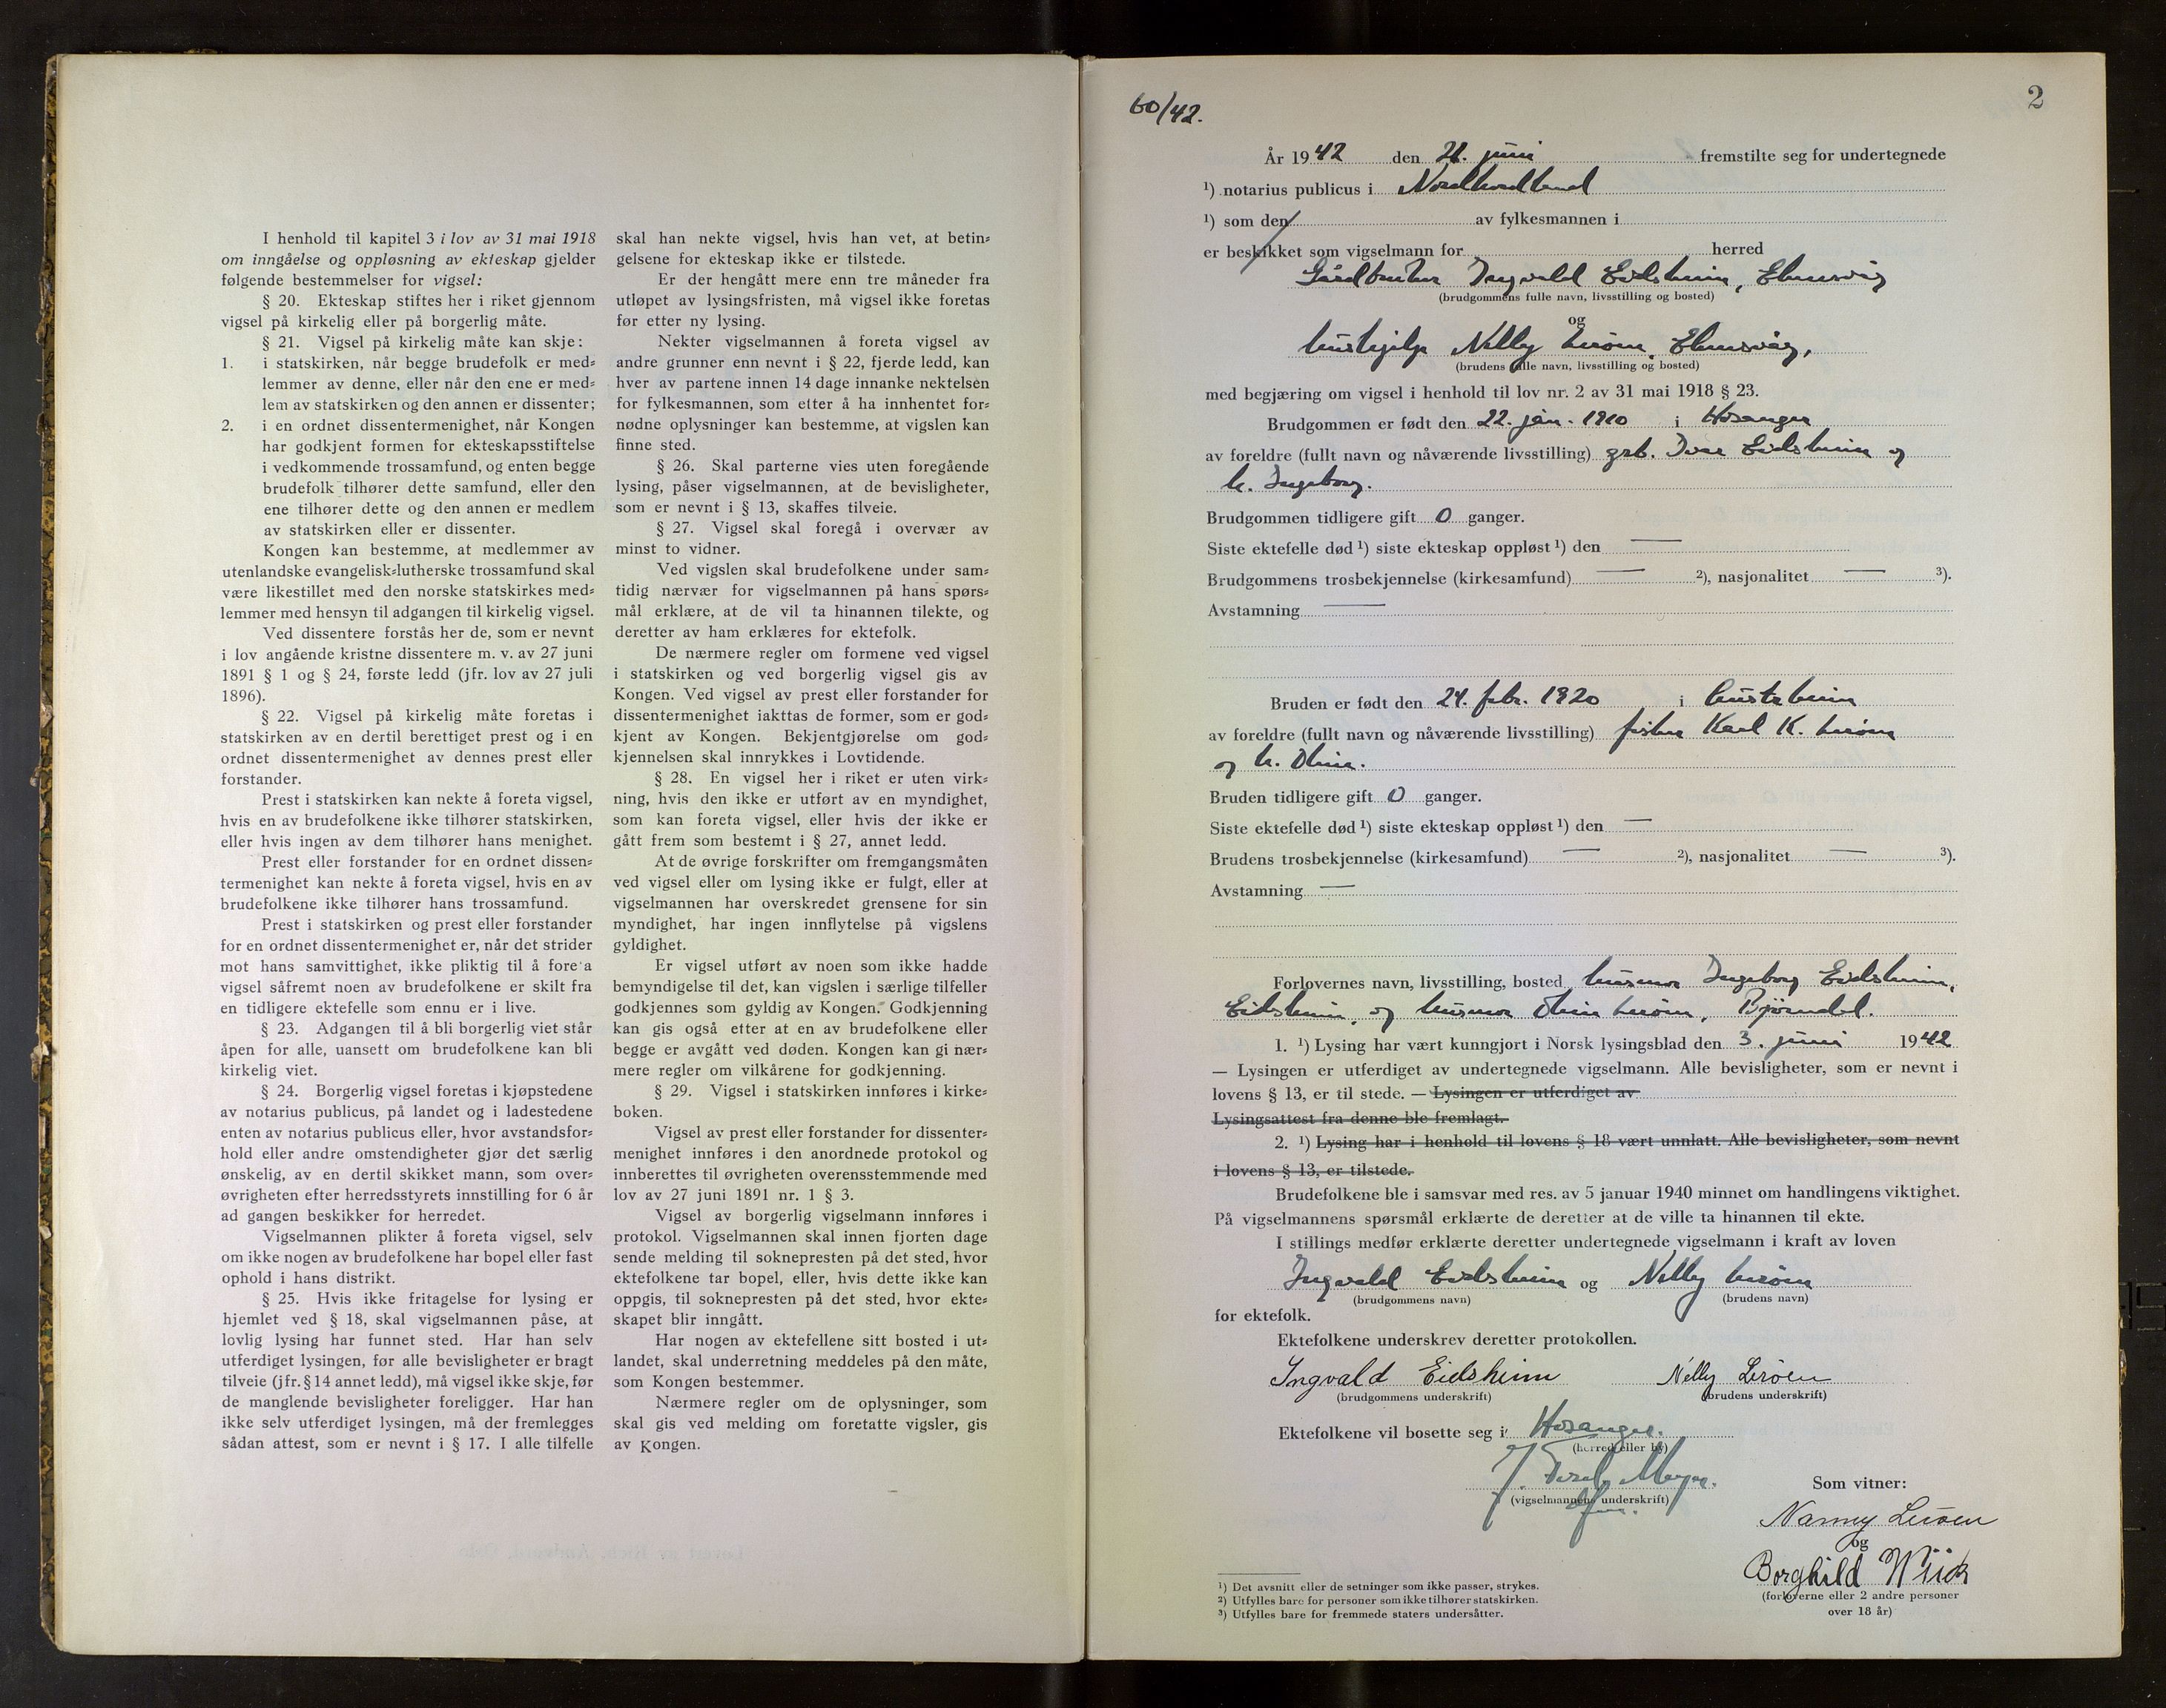 I henhold til kapitel 3 i lov av 31 mai 1918
om inngåelse og oppløsning av ekteskap gjelder
følgende bestemmelser for vigsel:
§ 20. Ekteskap stiftes her i riket gjennom
vigsel på kirkelig eller på borgerlig måte.
§ 21. Vigsel på kirkelig måte kan skje:
1. i statskirken, når begge brudefolk er med=
lemmer av denne, eller når den ene er med=
lem av statskirken og den annen er dissenter;
2. i en ordnet dissentermenighet, når Kongen
har godkjent formen for ekteskapsstiftelse
i vedkommende trossamfund, og enten begge
brudefolk tilhører dette samfund, eller den
ene tilhører dette og den annen er medlem
av statskirken eller er dissenter.
Kongen kan bestemme, at medlemmer av
utenlandske evangelisk=lutherske trossamfund skal
være likestillet med den norske statskirkes med=
lemmer med hensyn til adgangen til kirkelig vigsel.
Ved dissentere forstås her de, som er nevnt
i lov angående kristne dissentere m. v. av 27 juni
1891 § 1 og § 24, første ledd (jfr. lov av 27 juli
1896).
§ 22. Vigsel på kirkelig måte foretas i
statskirken av en dertil berettiget prest og i en
ordnet dissentermenighet av dennes prest eller
forstander.
Prest i statskirken kan nekte å foreta vigsel,
hvis en av brudefolkene ikke tilhører statskirken,
eller hvis ingen av dem tilhører hans menighet.
Prest eller forstander for en ordnet dissen=
termenighet kan nekte å foreta vigsel, hvis en av
brudefolkene ikke tilhører hans trossamfund.
Prest i statskirken og prest eller forstander
for en ordnet dissentermenighet er, når det strider
mot hans samvittighet, ikke pliktig til å foreta
vigsel såfremt noen av brudefolkene er skilt fra
en tidligere ektefelle som ennu er i live.
§ 23. Adgangen til å bli borgerlig viet står
åpen for alle, uansett om brudefolkene kan bli
kirkelig viet.
§ 24. Borgerlig vigsel foretas i kjøpstedene
av notarius publicus, på landet og i ladestedene
enten av notarius publicus eller, hvor avstandsfor=
hold eller andre omstendigheter gjør det særlig
ønskelig, av en dertil skikket mann, som over=
øvrigheten efter herredsstyrets innstilling for 6 år
ad gangen beskikker for herredet.
Vigselmannen plikter å foreta vigsel, selv
om ikke nogen av brudefolkene har bopel eller fast
ophold i hans distrikt.
§ 25. Hvis ikke fritagelse for lysing er
hjemlet ved § 18, skal vigselmannen påse, at
lovlig lysing har funnet sted. Har han selv
utferdiget lysingen, før alle bevisligheter er bragt
tilveie (jfr. § 14 annet ledd), må vigsel ikke skje, før
de manglende bevisligheter foreligger. Har han
ikke selv utferdiget lysingen, må der fremlegges
sådan attest, som er nevnt i § 17. I alle tilfelle
skal han nekte vigsel, hvis han vet, at betin=
gelsene for ekteskap ikke er tilstede.
Er der hengått mere enn tre måneder fra
utløpet av lysingsfristen, må vigsel ikke foretas
før etter ny lysing.
Nekter vigselmannen å foreta vigsel av
andre grunner enn nevnt i § 22, fjerde ledd, kan
hver av partene innen 14 dage innanke nektelsen
for fylkesmannen, som etter å ha innhentet for=
nødne oplysninger kan bestemme, at vigslen kan
finne sted.
§ 26. Skal parterne vies uten foregående
lysing, påser vigselmannen, at de bevisligheter,
som er nevnt i § 13, skaffes tilveie.
§ 27. Vigsel skal foregå i overvær av
minst to vidner.
Ved vigslen skal brudefolkene under sam=
tidig nærvær for vigselmannen på hans spørs=
mål erklære, at de vil ta hinannen tilekte, og
deretter av ham erklæres for ektefolk.
De nærmere regler om formene ved vigsel
i statskirken og ved borgerlig vigsel gis av
Kongen. Ved vigsel av prest eller forstander for
dissentermenighet iakttas de former, som er god=
kjent av Kongen. Bekjentgjørelse om god=
kjennelsen skal innrykkes i Lovtidende.
§ 28. En vigsel her i riket er uten virk=
ning, hvis den ikke er utført av en myndighet,
som kan foreta vigsel, eller hvis der ikke er
gått frem som bestemt i § 27, annet ledd.
At de øvrige forskrifter om fremgangsmåten
ved vigsel eller om lysing ikke er fulgt, eller at
vigselmannen har overskredet grensene for sin
myndighet, har ingen innflytelse på vigslens
gyldighet.
Er vigsel utført av noen som ikke hadde
bemyndigelse til det, kan vigslen i særlige tilfeller
godkjennes som gyldig av Kongen. Godkjenning
kan gis også etter at en av brudefolkene eller
begge er avgått ved døden. Kongen kan gi nær=
mere regler om vilkårene for godkjenning.
§ 29. Vigsel i statskirken innføres i kirke=
boken.
Vigsel av prest eller forstander for dissenter=
menighet innføres i den anordnede protokol og
innberettes til øvrigheten overensstemmende med
lov av 27 juni 1891 nr. 1 § 3.
Vigsel av borgerlig vigselmann innføres i
protokol. Vigselmannen skal innen fjorten dage
sende melding til soknepresten på det sted, hvor
ektefolkene tar bopel, eller, hvis dette ikke kan
oppgis, til soknepresten på det sted, hvor ekte=
skapet blir inngått.
Har nogen av ektefellene sitt bosted i ut=
landet, skal underretning meddeles på den måte,
som Kongen bestemmer.
Nærmere regler om de oplysninger, som
skal gis ved melding om foretatte vigsler, gis
av Kongen.
60/42.
2
År 1942 den 21. juni fremstilte seg for undertegnede
1) notarius publicus i Nordhordland
1) som den av fylkesmannen i
er beskikket som vigselmann for herred
Gårdbruker Ingvald Eidsheim, Eknesvåg
(brudgommens fulle navn, livsstilling og bosted)
og
hushjelp Nelly Lerøen, Eknesvåg,
(brudens fulle navn, livsstilling og bosted)
med begjæring om vigsel i henhold til lov nr. 2 av 31 mai 1918 § 23.
Brudgommen er født den 22. jan. 1910 i Hosanger
av foreldre (fullt navn og nåværende livsstilling) grb. Ivar Eidsheim og
h. Ingeborg.
Brudgommen tidligere gift 0 ganger.
Siste ektefelle død 1) siste ekteskap oppløst 1) den —
Brudgommens trosbekjennelse (kirkesamfund) — 2), nasjonalitet — 3).
Avstamning —
Bruden er født den 24. febr. 1920 i Austrheim
av foreldre (fullt navn og nåværende livsstilling) fisker Karl K. Lerøen
og h. Oline.
Bruden tidligere gift 0 ganger.
Siste ektefelle død 1) siste ekteskap oppløst 1) den —
Brudens trosbekjennelse (kirkesamfund) — 2), nasjonalitet — 3).
Avstamning —
Forlovernes navn, livsstilling, bosted husmor Ingeborg Eidsheim,
Eidsheim, og husmor Oline Lerøen, Bjørndal.
1. 1) Lysing har vært kunngjort i Norsk lysingsblad den 3. juni 1942
— Lysingen er utferdiget av undertegnede vigselmann. Alle bevisligheter, som er nevnt i
lovens § 13, er til stede. — Lysingen er utferdiget av
Lysingsattest fra denne ble fremlagt.
2. 1) Lysing har i henhold til lovens § 18 vært unnlatt. Alle bevisligheter, som nevnt
i lovens § 13, er tilstede.
Brudefolkene ble i samsvar med res. av 5 januar 1940 minnet om handlingens viktighet.
På vigselmannens spørsmål erklærte de deretter at de ville ta hinannen til ekte.
I stillings medfør erklærte deretter undertegnede vigselmann i kraft av loven
Ingvald Eidsheim og Nelly Lerøen
(brudgommens navn) (brudens navn)
for ektefolk.
Ektefolkene underskrev deretter protokollen.
Ingvald Eidsheim Nelly Lerøen
(brudgommens underskrift) (brudens underskrift)
Ektefolkene vil bosette seg i Hosanger.
(herred eller by)
(vigselmannens underskrift)
Som vitner:
Nanny Lerøen
og
Borghild Wiick
(forloverne eller 2 andre personer
over 18 år)
1) Det avsnitt eller de setninger som ikke passer, strykes.
2) Utfylles bare for personer som ikke tilhører statskirken.
3) Utfylles bare for fremmede staters undersåtter.